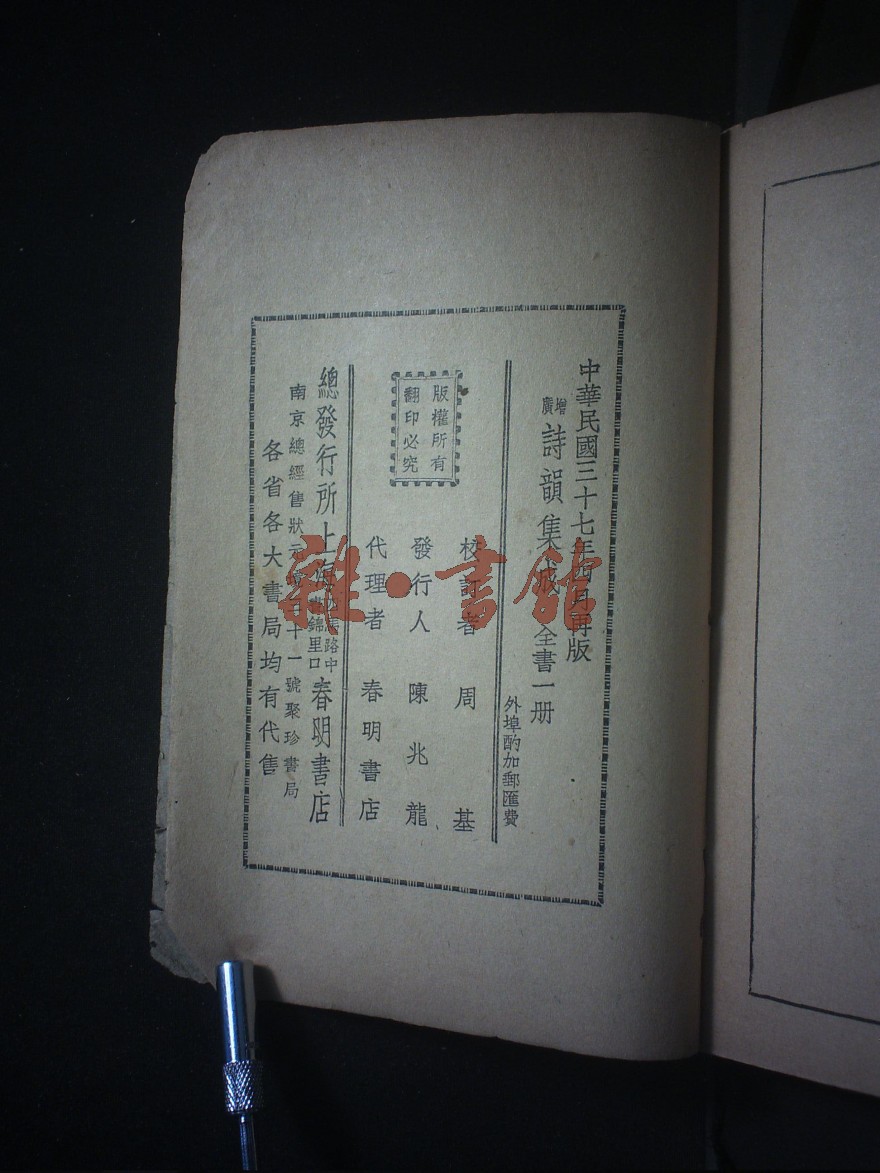 中華民國三十七年四月再版
增廣 詩韻集成 全書一册
外埠酌加郵匯費
校訂者 周基
發行人 陳兆龍
代理者 春明書店
版權所有
翻印必究
總發行所上海 路中 錦里口 春明書店
南京總經售狀元 十一號聚珍書局
各省各大書局均有代售
雜·書館